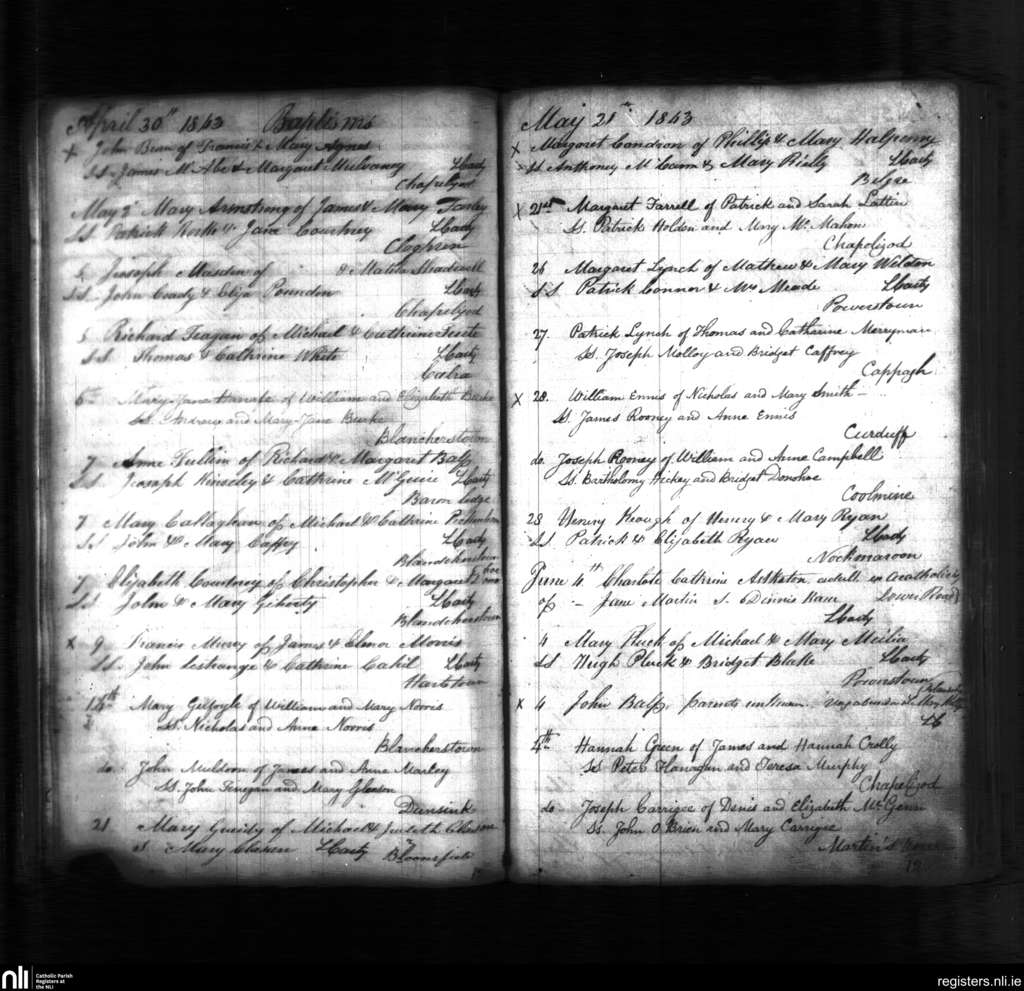 April 30th 1843 Baptisms
x John Brien of Francis & Mary Agnes
SS James McAbe & Margaret Mulvanny LCady
Chapelizod
May 2 Mary Armstrong of James & Mary Farley
SS Patrick & Jane Courtney LCady
Clogheen
5 Joesoph of & Matilda
SS John Coady & Eliza Poundon LCady
Chapelizod
5 Richard Feagan of Michael & Cathrine
SS Thomas & Cathrine White LCady
Coolra
6th Mary Jane of William and Elizabeth Burke
SS. Andrew and Mary Jane Burke
Blancherstown
7 Anne Fullim of Richard & Margaret Balf
SS Joesoph Kinseley & Cathrine McGuire LCady
Baron lodge
7 Mary Callaghan of Michael & Cathrine
SS John & Mary Caffry LCady
Blandcherstown
7 Elizabeth Courtney of Christopher & Margaret
SS John & Mary Giherty LCady
Blandcherstown
x 9 Francis Murry of James & Elenor Morris
SS. John Lestrange & Cathrine Cahil LCady
Hartstown
14th Mary Guilfoyle of William and Mary Norris
SS. Nicholas and Anne Norris
Blancherstown
do. John Muldoon of James and Anne Marley
SS. John Finegan and Mary Gleeson
Dunsink
21 Mary of Michael & Judeth
S Mary LCady Bloomfield
May 21st 1843
x Margaret Condron of Phillip & Mary Halpenny
SS Anthoney McCann & Mary Rielly LCady
Belgee
x 21st Margaret Farrell of Patrick and Sarah Lattin
SS. Patrick Holdon and Mary McMahon
Chapolizod
26 Margaret Lynch of Mathew & Mary Weldon
SS Patrick Connor & Mrs Meade LCady
Powerstown
27. Patrick Lynch of Thomas and Catharine Merryman
SS. Joseph Molloy and Bridget Caffrey
Cappagh
x 28. William Ennis of Nicholas and Mary Smith
SS James Rooney and Anne Ennis
Curduff
do. Joseph Rooney of William and Anne Campbell
SS. Bartholomy Hickey and Bridget Donohoe
Coolmine
28 Henery Keough of Henery & Mary Ryan
SS Patrick & Elizabeth Ryan LCady
Nockmaroon
June 4th Charlote Cathrine Askston adult
of Jane Martin S. Dennis Lower Road
LCady
4 Mary Pluck of Michael & Mary
SS Hugh Pluck & Bridget Blake LCady
Powerstown
x 4 John Balf. parents unknown
LC
4th Hannah Green of James and Hannah Crolly
SS Peter Flanagan and Teresa Murphy
Chapelizod
do Joseph Carrigee of Denis and Elizabeth McGann
SS. John O Brien and Mary Carrigee
Martin's
nli Catholic Parish
Registers at
the NLI
registers.nli.ie